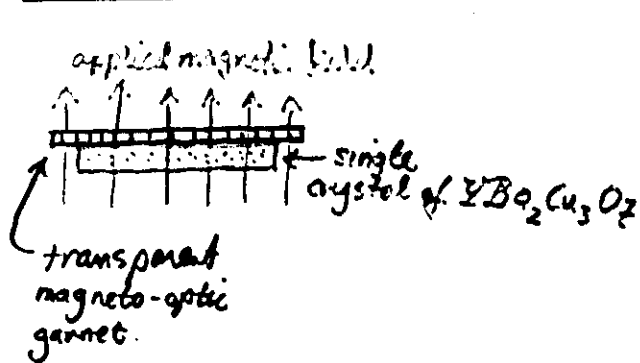 applied magnetic field
single
crystal of YBa₂Cu₃O₇
transparent
magneto-optic
garnet.